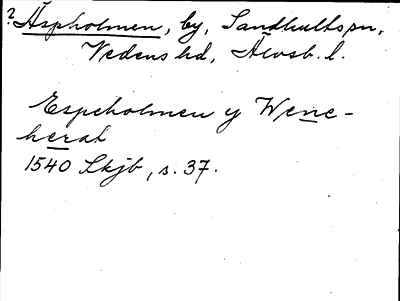 ? Äspholmen, by, Sandhults sn,
Vedens hd, Älvsb. l.
Espeholmen y Wene-
herat
1540 Skjb, s. 37.